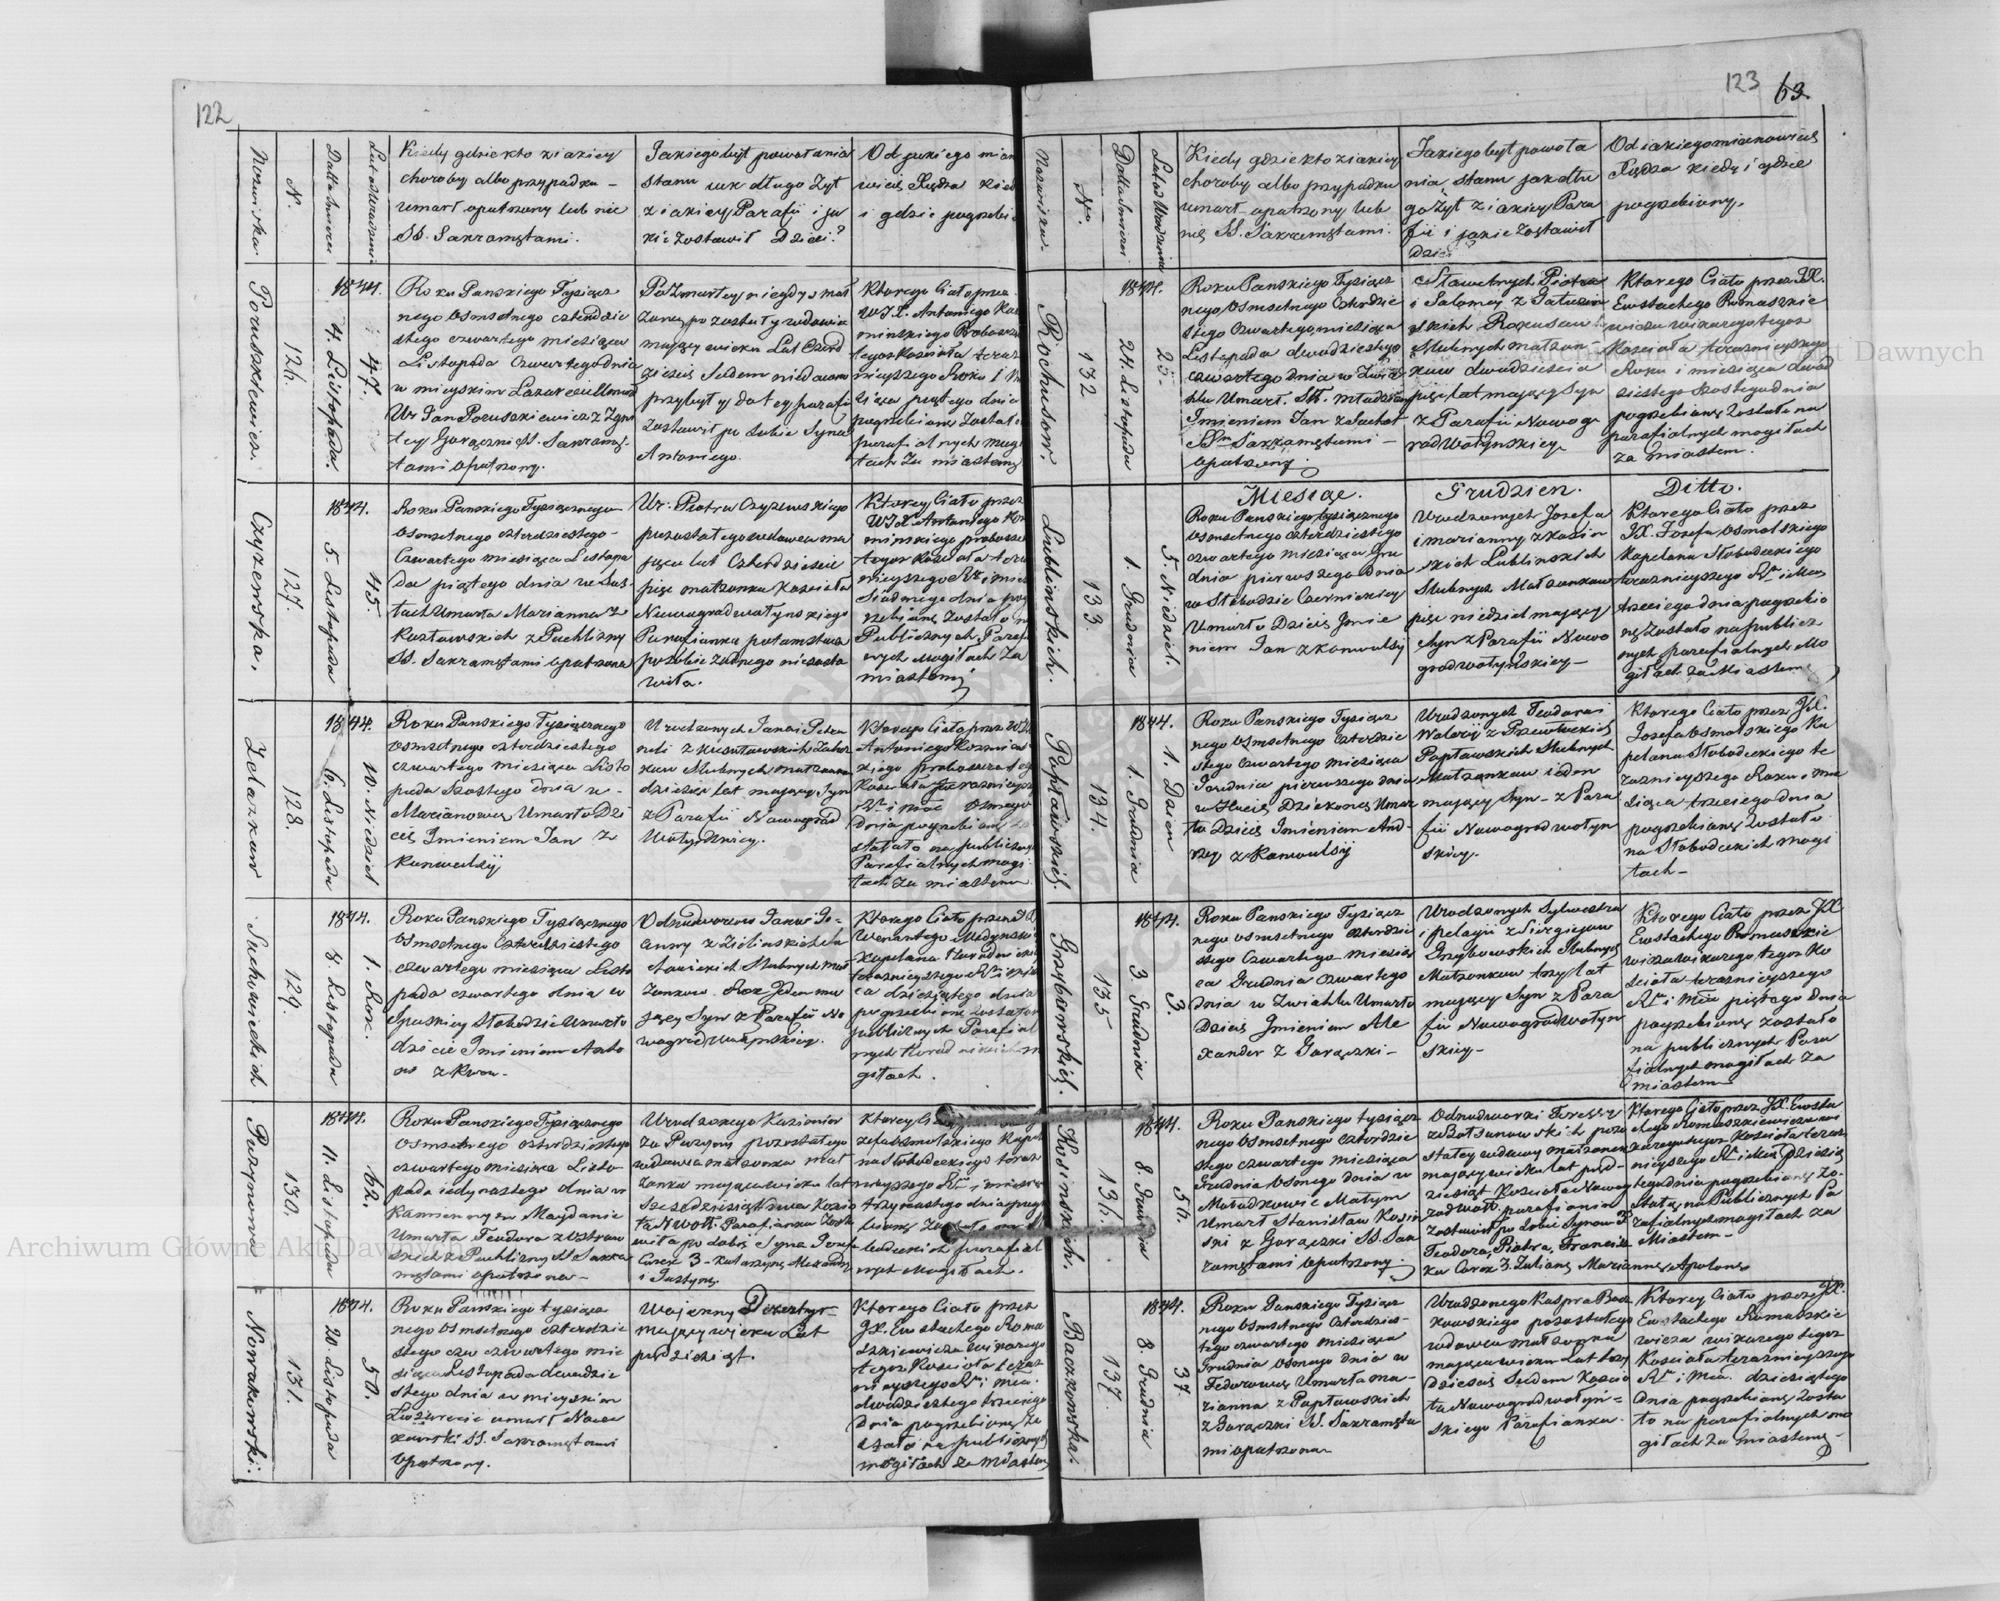 122
Nazwiska.
N.
Datta śmierci
Lat od Urodzenia
Kiedy gdzie kto z iakiey
choroby albo przypadku –
umarł opatrzony lub nie
SS. Sakramętami.
Jakiego był powołania
stanu jak długo żył
z iakiey Parafii i ja
kie zostawił Dzieci?
Od jakiego mian
wicie Xiędza kied
i gdzie pogrzebi
Poruszkiewicz.
126.
1844.
4. Listopada.
47.
Roku Panskiego Tysiącz
nego Osmsetnego czterdzie
stego czwartego miesiąca
Listopada czwartego dnia
w mieyskim Lazarecie Umarł
Ur Jan Poruszkiewicz z Zgni
łey Gorączni SS. Sakramę
tami opatrzony.
Po Zmarłey niegdys mał
żonce pozostały wdowiec
maiący wieku Lat Czterd
zieści siedem niedawno
przybyły do tey parafii
zostawił po sobie Syna
Antoniego.
Ktorego Ciało przez
WJX. Antoniego Koz
minskiego Probosz
tegoż Kościoła teraz
nieyszego Roku i M
siąca piątego dnia
pogrzebione Zostało
parafialnych mogi
łach za miastem
Czyzewska.
127.
1844.
5. Listopada
45.
Roku Panskiego Tysiącznego
Osmsetnego czterdziestego –
Czwartego miesiąca Listopa
da piątego dnia w
Umarła Marianna z
Kozłowskich z Puchliny
SS. Sakramętami opatrzona
Ur: Piotra Czyzewskiego
pozostałego wdowca ma
jąca lat Czterdzieście
pięć małżonka Kościoła
Nowogradwołynskiego
Parafianka potomstwa
po sobie żadnego niezosta
wiła.
Ktorey Ciało przez
WJX. Antoniego Koz
minskiego probosz
tegoż Kościoła teraz
nieyszego Rku i mies
Siodmego dnia pog
rzebione zostało n
Publicznych Paraf
nych Mogiłach Za
miastem
Zelazkow
128.
1844.
6. Listopada
10. Niedziel
Roku Panskiego Tysiącznego
Osmsetnego czterdziestego
czwartego miesiąca Listo
pada Szostego dnia w –
Maryanowce Umarło Dzi
cie Imieniem Jan z
Konwulsij
Urodzonych Jana i Petro
neli z Zelaz
kow Slubnych małżonkow
dziesieć lat maiący Syn
z Parafii Nowograd
Wołynskiey.
Ktorego Ciało przez WJX
Antoniego Kozmins
kiego proboszcza teg
Kościoła Terazniejsz
Rku i mca Osmego
dnia pogrzebione zo
stało na publicznych
Parafialnych mogi
łach za miastem
Suchowieckich
129.
1844.
8. Listopada
1. Rok.
Roku Panskiego Tysiącznego
Osmsetnego Czterdziestego
czwartego miesiąca Listo
pada czwartego dnia w
Słobodzie Umarło
dziecie Imieniem Anto
ni z Krou –
Odnodworcow Jana i Jo-
anny z Zielinskich
Slubnych mał
żonkow. Rok Jeden ma
jący Syn z Parafii No
wogradWołynskiey.
Ktorego Ciało przez JX
Wenantego Medyns
Kapelana Horodnickie
terazniejszego Rku i mie
ca dziesiątego dnia
pogrzebione zostało
publicznych Parafial
nych Horodnickich m
giłach.
Puzynowa
130.
1844.
11. Listopada
62.
Roku Panskiego Tysiącznego
Osmsetnego czterdziestego
czwartego miesiąca Listo-
pada jedynastego dnia w
Kamiennym Maydanie
Umarła Teodora z Ostrow
skich z Puchliny SS Sakra
mętami opatrzona –
Urodzonego Kazimirz
za Puzyny pozostałego
wdowca małżonka mał
żonka maiąca wieku lat
Szesdziesiąt dwa Kościo
ła NWoł: Parafianka Zosta
wiła po sobie Syna Jozefa
Corek 3 – Katarzynę Alexandrę
i Justynę.
Ktorey Ci
zefa Osmolskiego Kapel
na Słobodeckiego teraz
nieyszego Rku i miesią
trzynastego dnia pogrz
bione Zostało na S
łodeckich parafial
nych Mogiłach.
Nowakowski.
131.
1844.
20. Listopada
50.
Roku Panskiego tysiącz
nego Osmsetnego czterdzie
stego czw czwartego mie
siąca Listopada dwudzie
stego dnia w mieyskim
Lazarecie umarł Nowa
kowski SS. Sakramętami
Opatrzony.
Wojenny Dezertyr –
Maiący wieku Lat
piędziesiąt.
Ktorego Ciało przez
JX. Eustachego Roma
szkiewicza Wikarego
tegoż Kościoła teraz
nieyszego Rku i Mca.
dwudziestego trzeciego
Dnia pogrzebione Zo
stało na publicznych
mogiłach za miastem
123
63.
Nazwiska.
N.
Datta śmierci
Lat od Urodzenia
Kiedy gdzie kto z iakiey
choroby albo przypadku
umarł opatrzony lub
nie SS. Sakramętami.
Jakiego był powoła
nia, stanu jak dłu
go żył z iakiey Para
fii i jakie zostawił
dzieci
Od iakiego mianowicie
Xiędza kiedy i gdzie
pogrzebiony.
Rochusow.
132
1844.
24. Listopada
25.
Roku Panskiego Tysiącz
nego Osmsetnego Czterdzie
stego Czwartego miesiąca
Listopada dwudziestego
czwartego dnia w Zwia
hlu Umarł. Sł. młodzian
Imieniem Jan z Suchot
SSmi Sakramętami –
Opatrzony.
Sławetnych Piotra
i Salomey z Gałecin
skich Rokusow
Slubnych małżon –
kow dwudzieścia
pięć lat maiący Syn
z Parafii Nowog
radWołynskiey
Ktorego Ciało przez JX.
Eustachego Romaszkie
wicza wikarego tegoż
Kościoła terazniejszego
Roku i miesiąca dwud
ziestego szostego dnia
pogrzebione Zostało na
parafialnych mogiłach
za Miastem.
Miesiąc. Grudzien. Ditto.
Lublinskich.
133
1. Grudnia
5. Niedziel.
Roku Panskiego tysiącznego
Osmsetnego czterdziestego
czwartego miesiąca Gru
dnia pierwszego dnia
w Słobodzie Czernickiey
Umarło Dziecie Imie
niem Jan z Konwulsij
Urodzonych Jozefa
i Marianny z Kosin
skich Lublinskich
Slubnych Małżonkow
pięć niedziel maiący
Syn z Parafii Nowo
gradwołynskiey –
Ktorego Ciało przez
JX. Jozefa Osmolskiego
Kapelana Słobodeckiego
terazniejszego Rku i Mca
trzeciego dnia pogrzebio
ne Zostało na publicz
nych parafialnych Mo
giłach za Miastem
Popławskich.
134.
1844.
1. Grudnia
1. Dzien
Roku Panskiego Tysiącz
nego Osmsetnego czterdzie
stego czwartego miesiąca
Grudnia pierwszego dnia
w Hucie Dziekonce Umar
ło Dziecie Imieniem And-
rzey z Konwulsij
Urodzonych Teodora i
Waleryi z Przewłockich
Popławskich Slubnych
Małżonkow ieden
maiący Syn – z Para
fii Nowogradwołyn
skiey.
Ktorego Ciało przez JX.
Jozefa Osmolskiego Ka
pelana Słobodeckiego te
raznieyszego Roku i mie
siąca trzeciego dnia
pogrzebione Zostało
na Słobodeckich mogi
łach –
Grzybowskich.
135
1844.
3. Grudnia
3.
Roku Panskiego Tysiącz
nego Osmsetnego czterdzie
stego Czwartego miesią
ca Grudnia czwartego
dnia w Zwiahlu Umarło
Dziecie Imieniem Ale
xander z Gorączki –
Urodzonych Sylwestra
i pelagii z Siergiejow
Grzybowskich Slubnych
Małżonkow trzy lat
maiący Syn z Para
fii Nowogradwołyn
skiey –
Ktorego Ciało przez JX
Eustachego Romaszkie
wicza wikarego tegoż Ko
ścioła terazniejszego
Rku i Mca piątego dnia
pogrzebione zostało
na publicznych Para
fialnych mogiłach za
miastem
Kosinskich.
136.
1844.
8. Grudnia
50.
Roku Panskiego tysiącz
nego Osmsetnego czterdzie
stego czwartego miesiąca
Grudnia Osmego dnia w
Mołodkowie Małym
Umarł Stanisław Kosin
ski z Gorączki SS. Sak
ramętami opatrzony
Odnodworki Teressy
z Bołsunowskich pozo
stałey wdowy małżonek
maiący wieku lat pięd-
ziesiąt Kościoła Nowog
radwoł: parafianin
Zostawił po sobie Synow 3.
Teodora, Piotra, Francisz
ka Corek 3. Julianę Mariannę Apolonę
Ktorego Ciało przez JX. Eusta
chego Romaszkiewicza wi
karego tegoż Kościoła teraz
nieyszego Rku i Mca dziesią
tego dnia pogrzebione Zo-
stało na Publicznych Pa
rafialnych mogiłach za
Miastem –
Baczkowska.
137.
1844.
8. Grudnia
37.
Roku Panskiego Tysiącz
nego Osmsetnego Czterdzies-
tego czwartego miesiąca
Grudnia Osmego dnia w
Fedorowce Umarła Ma-
rianna z Popławskich
z Gorączki SS. Sakramęta
mi opatrzona
Urodzonego Kaspra Bacz
kowskiego pozostałego
wdowca małżonka
maiąca wieku Lat trzy
dzieści Siedem Kościo
ła Nowogradwołyn =
skiego Parafianka.
Ktorey Ciało przez JX.
Eustachego Romaszkie
wicza wikarego tegoż
Kościoła terazniejszego
Rku i Mca. dziesiątego
dnia pogrzebione Zosta
ło na parafialnych mo
giłach za Miastem –
Archiwum Główne Akt Dawnych
Archiwum Główne Akt Dawnych